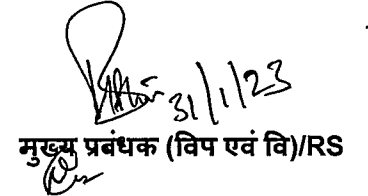 31/1/23
मुख्य प्रबंधक (विप एवं वि)/RS